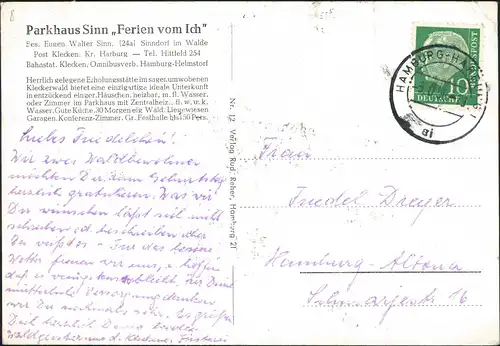 8
Parkhaus Sinn „Ferien vom Ich"
Bes. Eugen Walter Sinn. (24a) Sinndorf im Walde
Post Klecken. Kr. Harburg — Tel. Hittfeld 254
Bahnstat. Klecken. Omnibusverb. Hamburg-Helmstorf
Herrlich gelegene Erholungsstätte im sagenumwobenen
Kleckerwald bietet eine einzigartige ideale Unterkunft
in entzückend einger. Häuschen, heizbar, m. fl. Wasser,
oder Zimmer im Parkhaus mit Zentralheiz.. fl. w. u. k.
Wasser. Gute Küche. 30 Morgen eig. Wald. Liegewiesen
Garagen. Konferenz-Zimmer. Gr. Festhalle bis 450 Pers.
Liebes Friedelchen!
Wir zwei Waldbewohner
möchten Dir zum Geburtstag
herzlich gratulieren. Was wir
Dir wünschen läßt sich nicht
schreiben od. beschreiben aber
Du weißt es -
Wetter freuen wir uns, u. hoffen
daß es
wir Dir nochmals sehr. Es grüßen
Dich herzlich
Nr. 12 Verlag Rud. Reher, Hamburg 21
HAMBURG-HA
DEUTSCHE BUNDESPOST
10
Frau
Friedel Dreyer
Hamburg-Altona
16